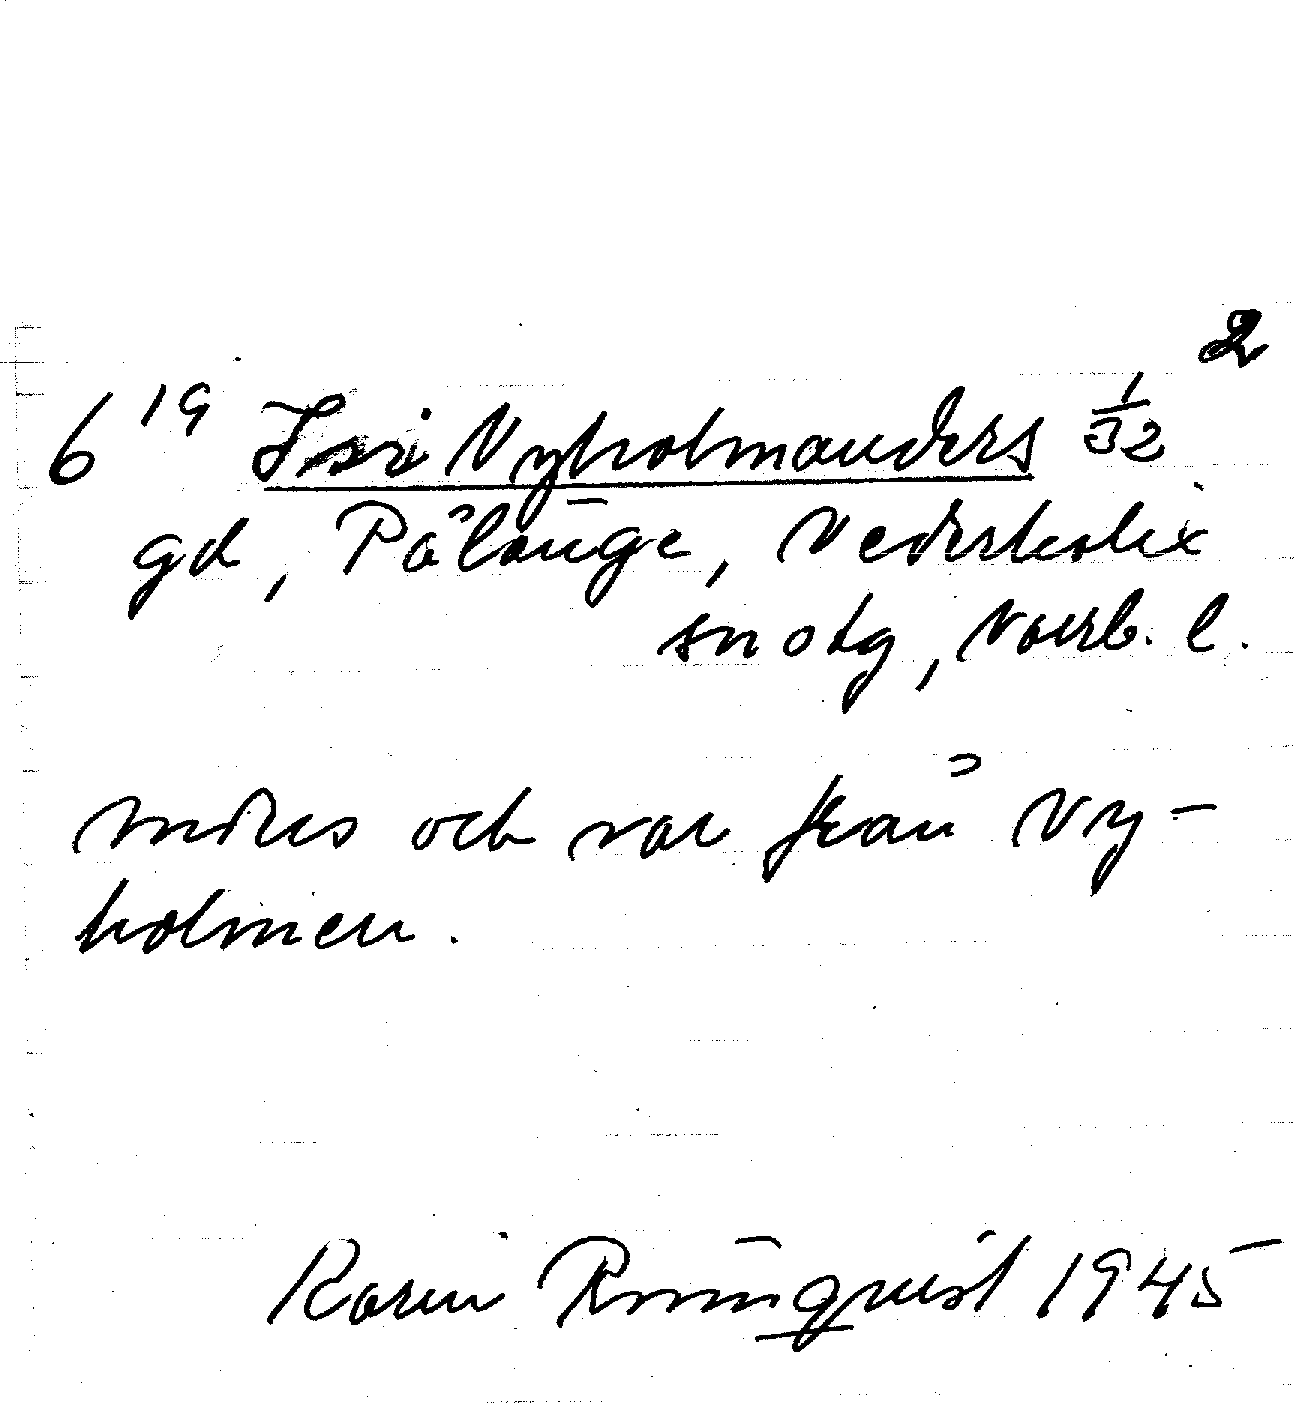 2
6 19 Isri Nyholmanders 1/32
gd, Pålänge, Nederkalix
sn otg, Norrb. l.
Anders och var från Ny-
holmen.
Karin Rönnqvist 1945